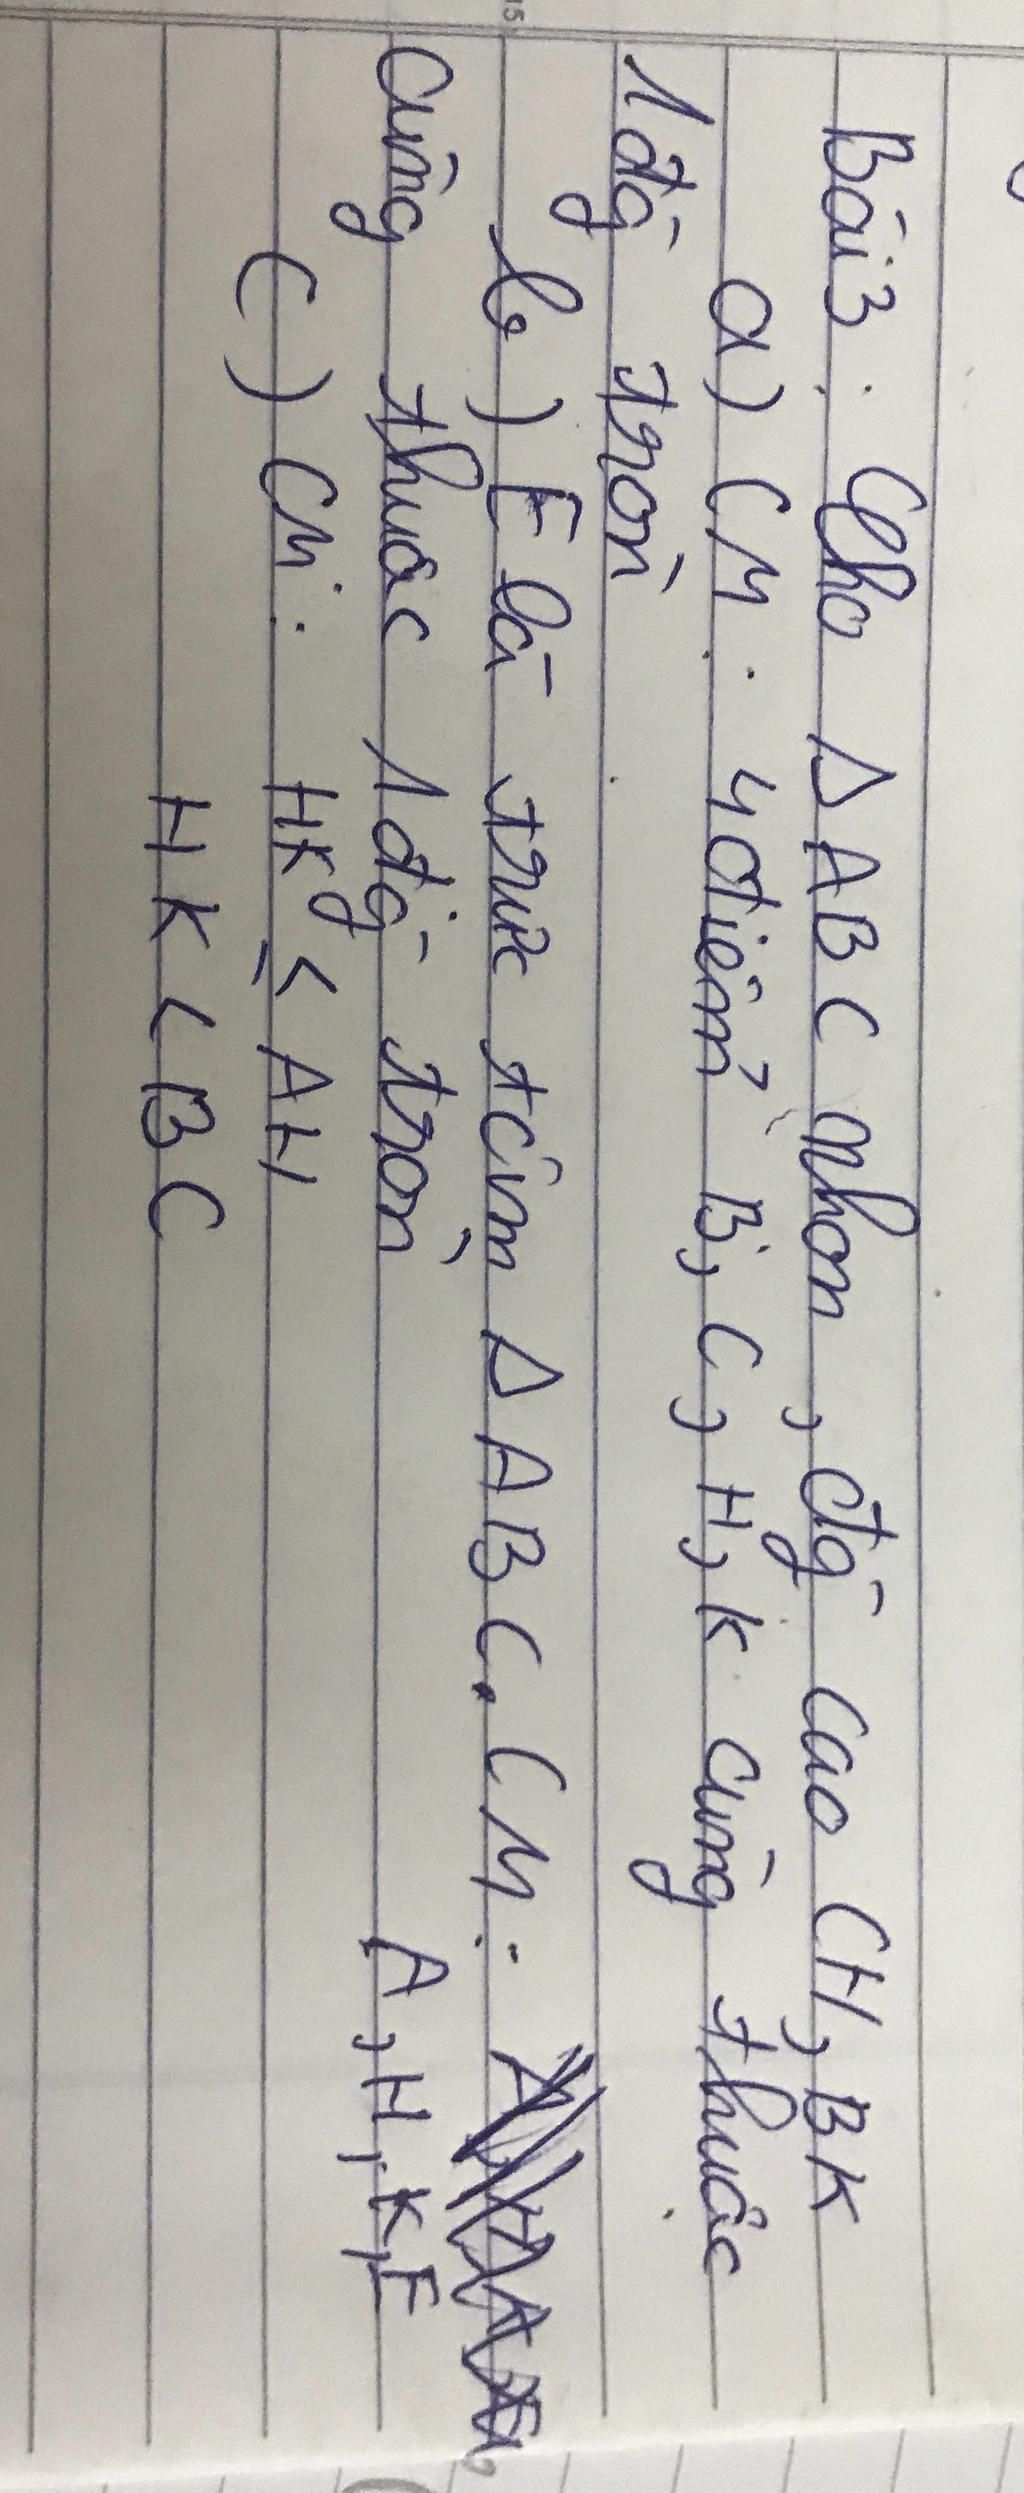 Bài 3: Cho Δ ABC nhọn, đg̀ cao CH, BK
a) CM: 4 điểm B, C, H, K cùng thuộc
1 đg̀ tròn
b) E là trực tâm Δ ABC. CM:
cùng thuộc 1 đg̀ tròn A, H, K, E
c) CM: HK ≤ AH
HK < BC